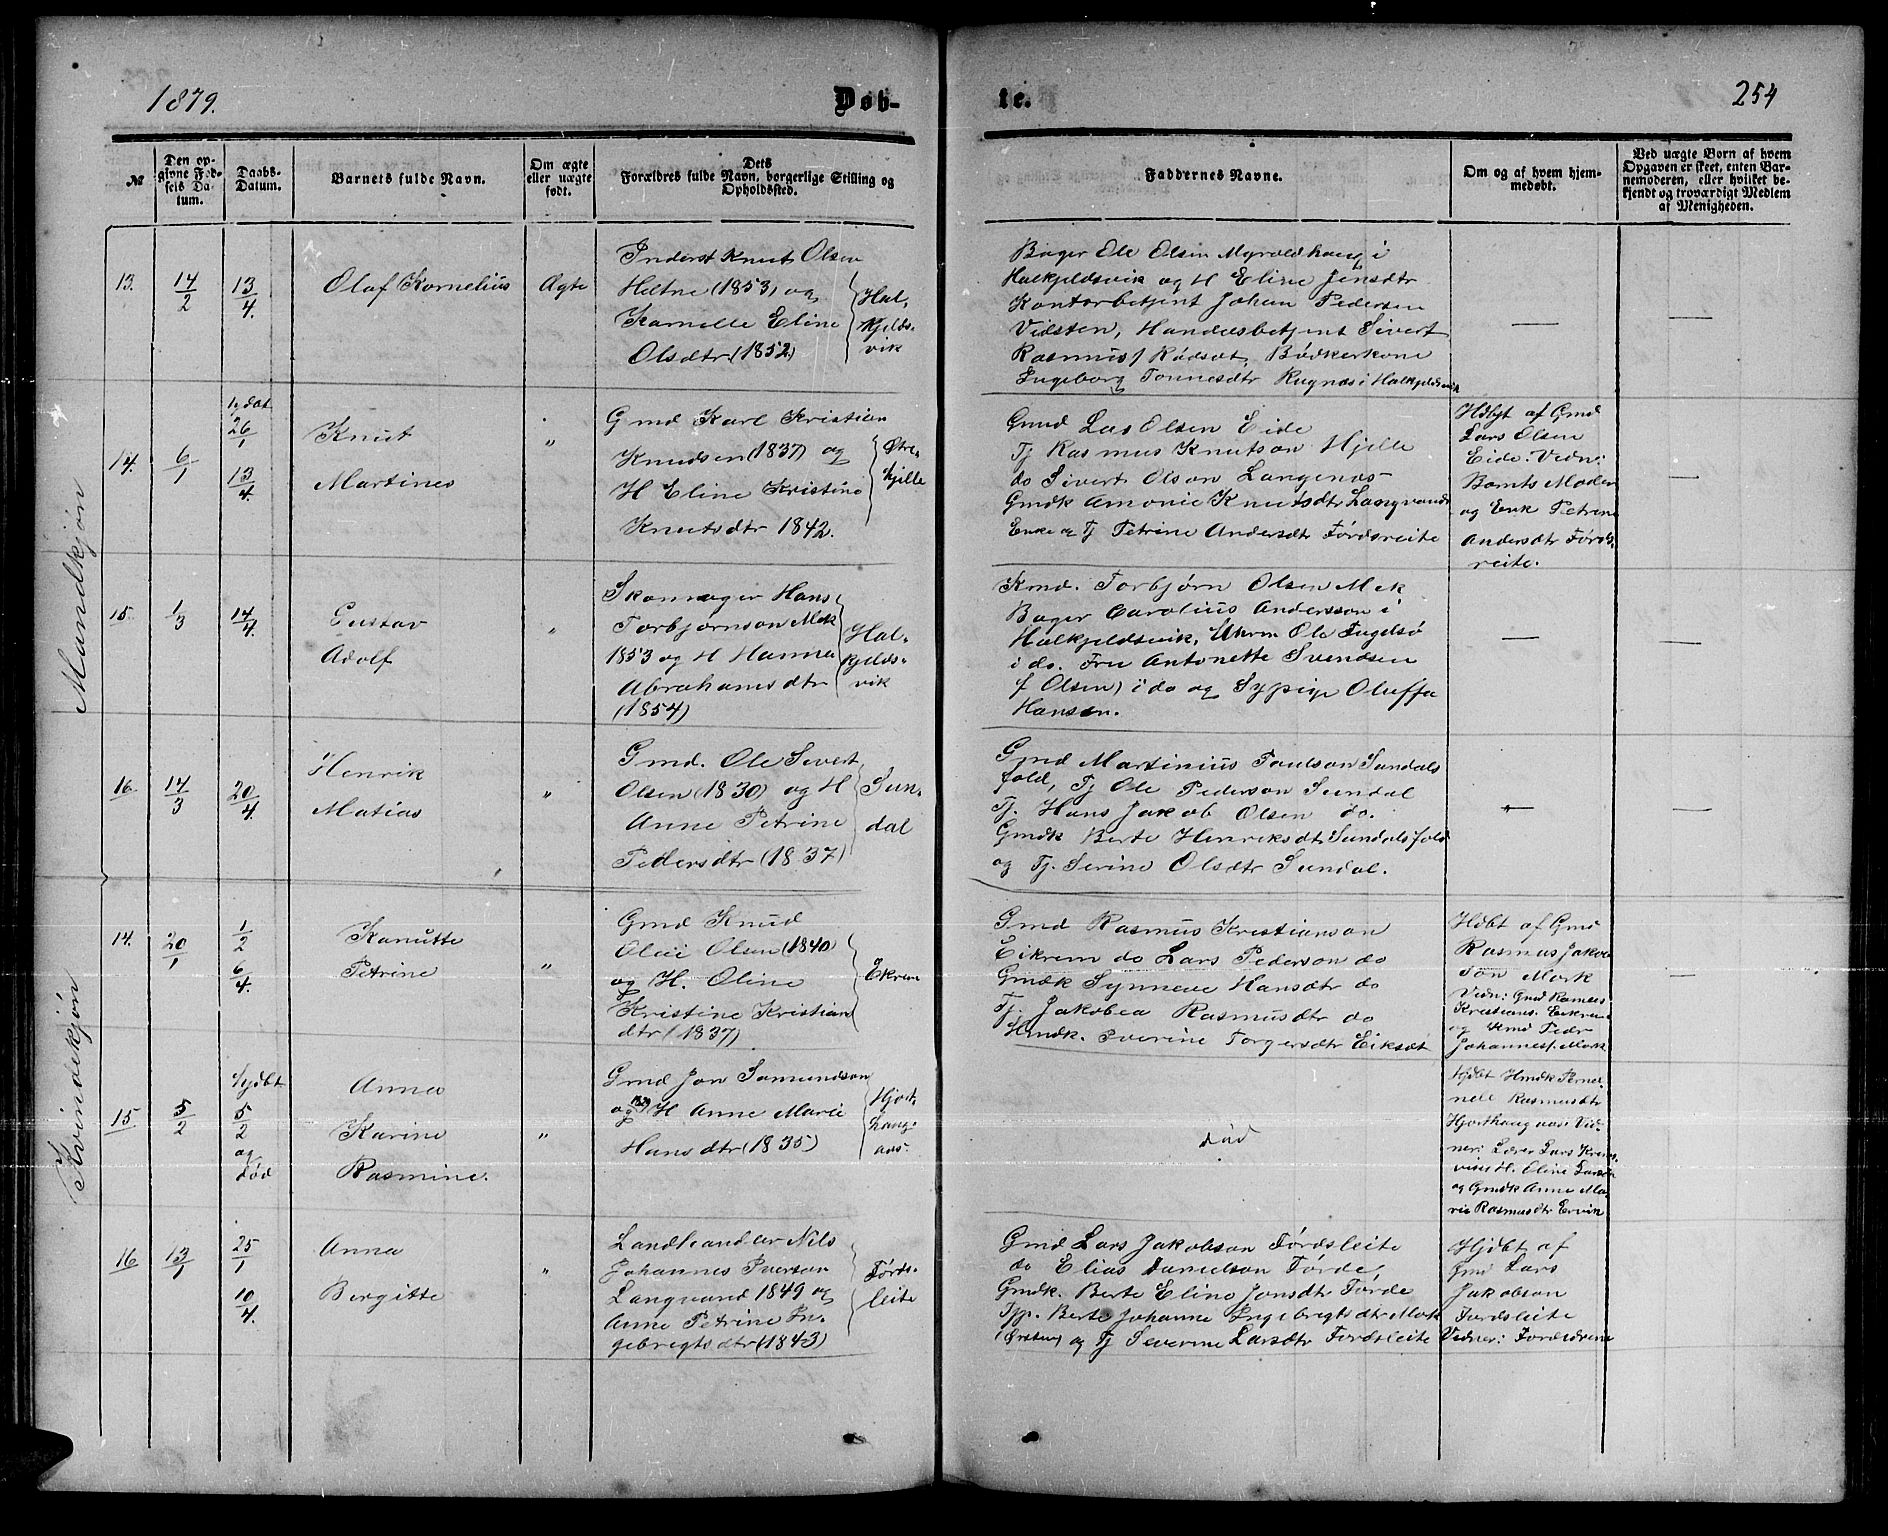 1879.
Døb-
te.
254
№
Den op-
givne Fød-
sels Da-
tum.
Daabs-
Datum.
Barnets fulde Navn.
Om ægte
eller uægte
født.
Dets
Forældres fulde Navn, borgerlige Stilling og
Opholdssted.
Faddernes Navne.
Om og af hvem hjem-
medøbt.
Ved uægte Børn af hvem
Opgaven er skeet, enten Bar-
nemoderen, eller hvilket be-
kjendt og troværdigt Medlem
af Menigheden.
Mandkjøn
13.
14/2
13/4.
Olaf Kornelius
Ægte
Inderst Knut Olsen
Heltne (1853) og
Karnelle Eline
Olsdtr (1852)
Hal-
kjelds-
vik
Bager Ole Olsen Myrvoldhaug i
Halkjeldsvik og H Eline Jensdtr
Kontorbetjent Johan Pedersen
Vidsten, Handelsbetjent Sivert
Rasmus/ Rødsæt, Bødkerkone
Ingeborg Tonnesdtr Rugnæs i Halkjeldsvik
—
—
14.
6/1
26/1
13/4.
Knut
Martines
"
Gmd Karl Kristian
Knudsen (1837) og
H Eline Kristine
Knutsdtr 1842.
Øvre-
hjelle
Gmd Las Olsen Eide
Tj Rasmus Knutson Hjelle
do Sivert Olson Langenæs
Gmdk Amonie Knutsdtr Langvand
Enke og Tj Petrine Andersdtr Førdsleite
Hdbt af Gmd
Lars Olsen
Eide. Vidn:
Barnts Moder
og Enk Petrine
Andersdtr Førds-
leite.
—
15.
1/3
14/4.
Gustav
Adolf
"
Skomager Hans
Torbjørnson Mek
1853 og H Hanna
Abrahamsdtr
(1854)
Hal-
kjelds-
vik
Kmd. Torbjørn Olsen Mek
Bager Carolius Andersson i
Halkjeldsvik, Uhrm Ole Fugelsø
i do. Fru Antonette Svendsen
f Olsen) i do og Sypige Oluffa
Hansen.
—
—
16.
14/3
20/4.
Henrik
Matias
"
Gmd. Ole Sivert
Olsen (1830) og H
Anne Petrine
Pedersdtr (1837)
Sun-
dal
Gmd Martinius Paulson Sundals
fold, Tj Ole Pederson Sundal
Tj. Hans Jakob Olsen do.
Gmdk Berte Henriksdtr Sundalsfold
og Tj. Serine Olsdtr Sundal.
—
—
Kvindekjøn
14.
20/1
1/2
6/4.
Kanutte
Petrine
"
Gmd Knud
Olai Olsen (1840)
og H. Oline
Kristine Kristian
dtr (1837)
Ekrem
Gmd Rasmus Kristianson
Eikrem do Lars Pederson do
Gmdk Synneve Hansdtr do
Tj. Jakobea Rasmusdtr do
Hmdk. Iverine Torgersdtr Eiksæt
Hdbt af Gmd
Rasmus Jakob
son Mork
Vidn: Gmd Rasmus
Kristians. Eikrem
og Hmd Peder
Johannesf. Mork
—
15
5/2
Hjdbt
5/2
og
død
Anna
Karine
Rasmine.
"
Gmd Jon Samundson
og H Anne Marie
Hansdtr (1835)
død
Hjdbt Hmdk Perne-
nelle Rasmusdtr
Hjorthaug aas: Vid-
ner: Lærer Lars
H. Oline Larsdtr
og Gmdk Anne Ma-
rie Rasmusdtr Ervik
16
13/1
25/1
10/4.
Anna
Bergitte
"
Landhandler Nils
Johannes Iverson
Langvand 1849 og
Anne Petrine In-
gebrigtsdtr (1843)
Førds-
leite
Gmd Lars Jakobson Førdsleite
do Elias Danielson Førde
Gmdk. Berte Eline Jonsdtr Førde
Tjp. Berte Johanne Ingebrigtsdtr Mork
(Ørsten) og Tj Severine Larsdtr Førdsleite
Hjdbt af
Gmd Lars
Jakobson
Førdsleite
Vidner: Forældrene